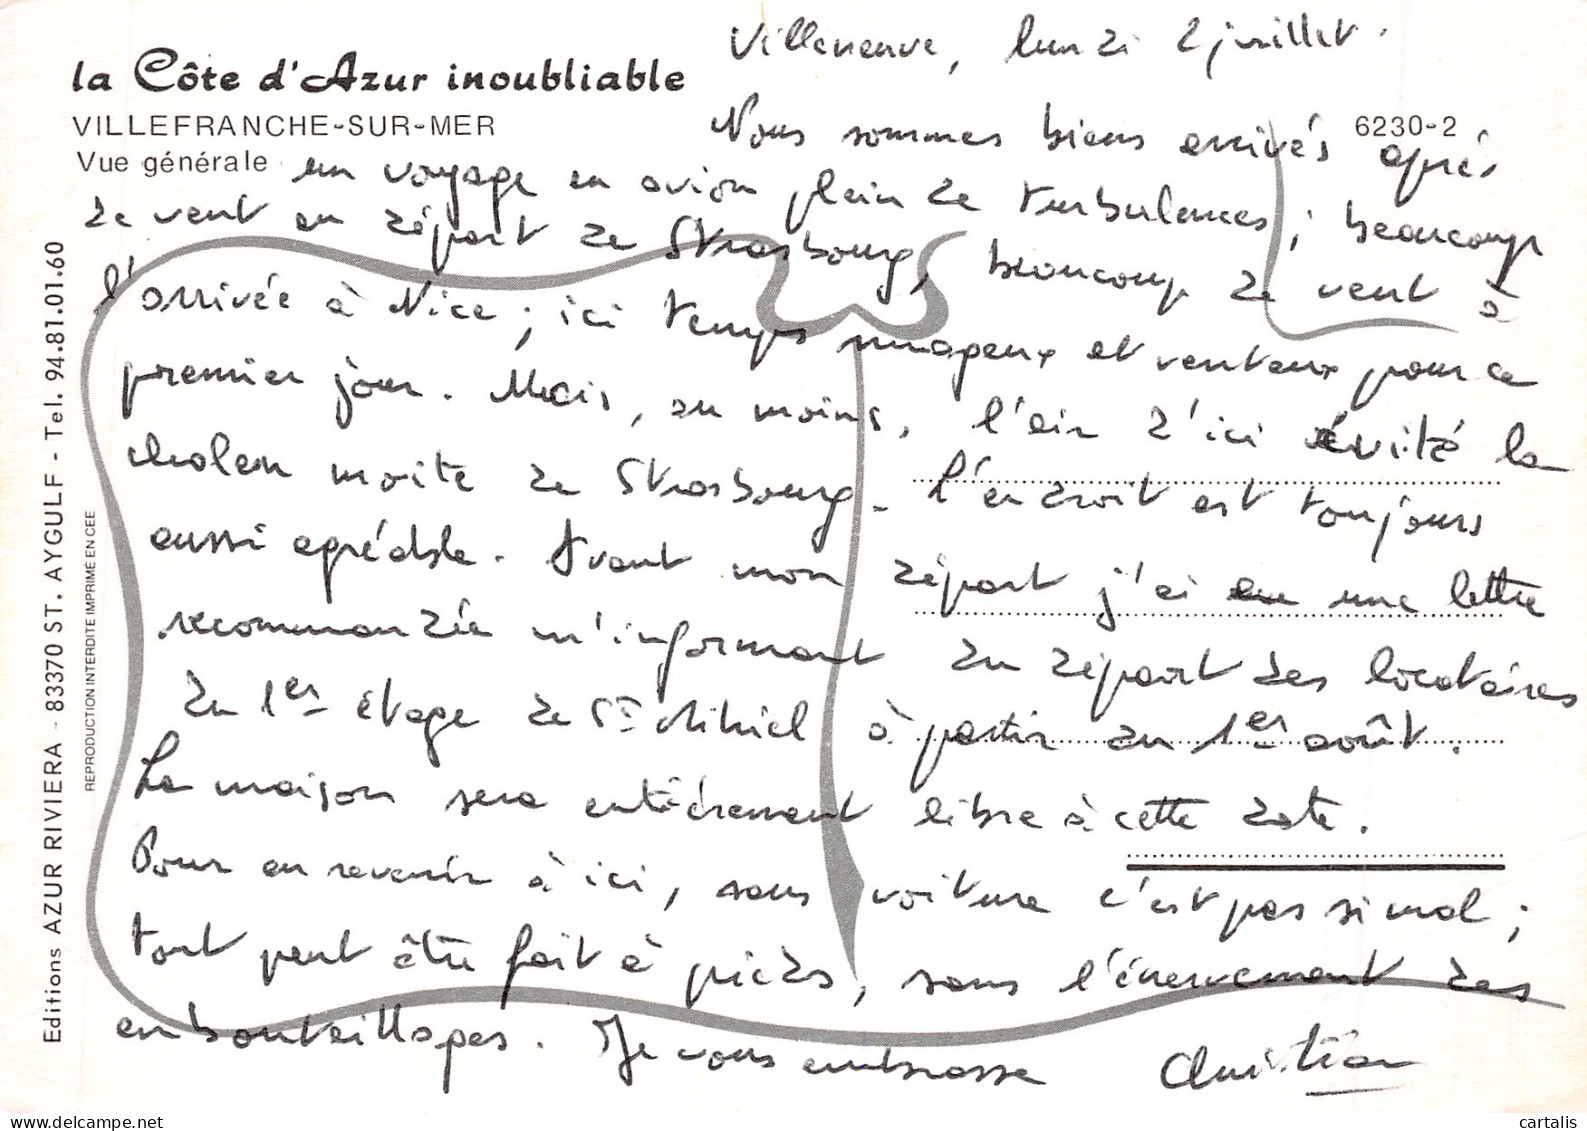 la Côte d'Azur inoubliable
VILLEFRANCHE-SUR-MER
Vue générale
6230-2
Villeneuve, lundi 2 juillet.
Nous sommes biens arrivés après
un voyage en avion plein de turbulences; beaucoup
de vent au départ de Strasbourg, beaucoup de vent à
l'arrivée à Nice; ici temps nuageux et venteux pour ce
premier jour. Mais, au moins, l'air d'ici évite la
chaleur moite de Strasbourg. L'endroit est toujours
aussi agréable. Avant mon départ j'ai eu une lettre
recommandée m'informant du départ des locataires
du 1er étage de St Mihiel à partir du 1er août.
La maison sera entièrement libre à cette date.
Pour en revenir à ici, sans voiture c'est pas si mal;
tout peut être fait à pieds, sans l'énervement des
embouteillages. Je vous embrasse Christian
Editions AZUR RIVIERA - 83370 ST. AYGULF - Tel. 94.81.01.60
REPRODUCTION INTERDITE IMPRIMÉ EN CEE
delcampe.net
cartalis